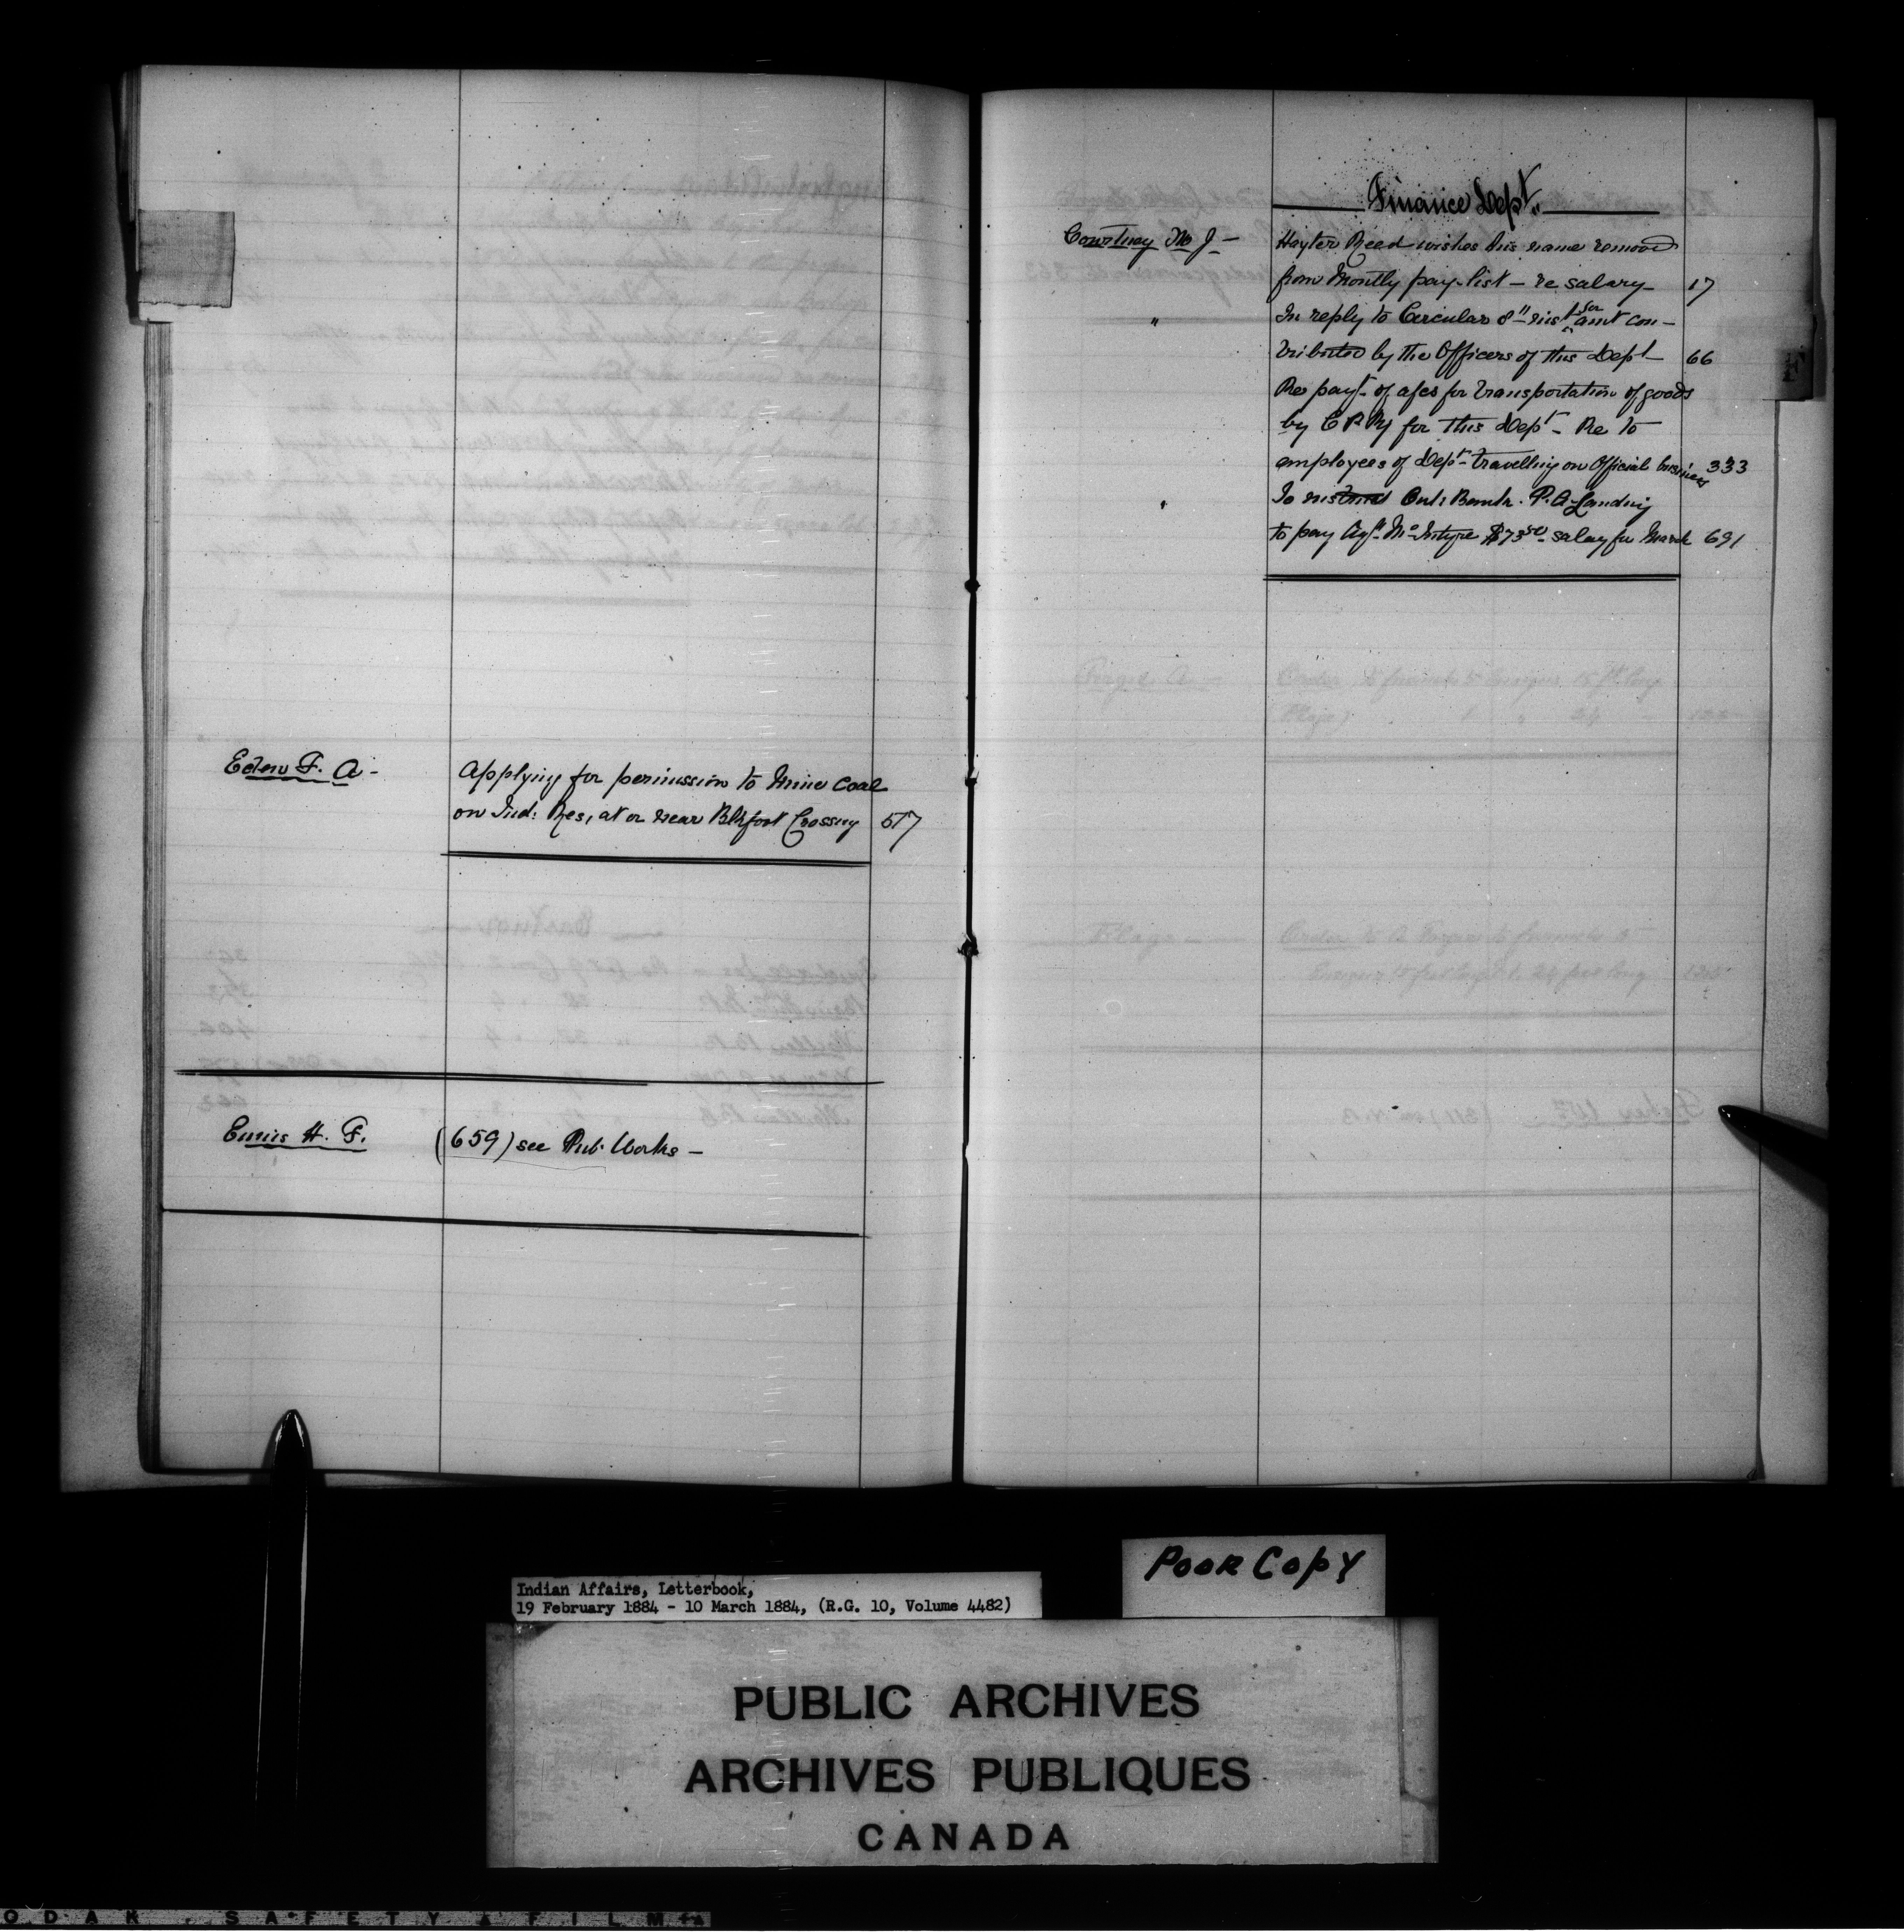 Eden F. A -
Applying for permission to Mine Coal
on Ind: Res, at or near Blkfoot Crossing 517
Ennis H. F. (659) see Pub. Works -
Finance Dept.
Courtney M J - Hayter Reed wishes his name removed
from Montly pay-list - re salary - 17
" In reply to Circular 8" inst for amt con-
tributed by the Officers of this Dept 66
Re payt of a/cs for transportation of goods
by C P Ry for this Dept - Re to
employees of Dept travelling on Official business 333
" To instruct Ont: Bank. P. A Landing
to pay Agt McIntyre $73 50 salary for March 691
F
Forget A - Order to furnish
Flags
Flags - Order to A Forget to furnish
Poor Copy
Indian Affairs, Letterbook,
19 February 1884 - 10 March 1884, (R.G. 10, Volume 4482)
PUBLIC ARCHIVES
ARCHIVES PUBLIQUES
CANADA
ODAK SAFETY FILM